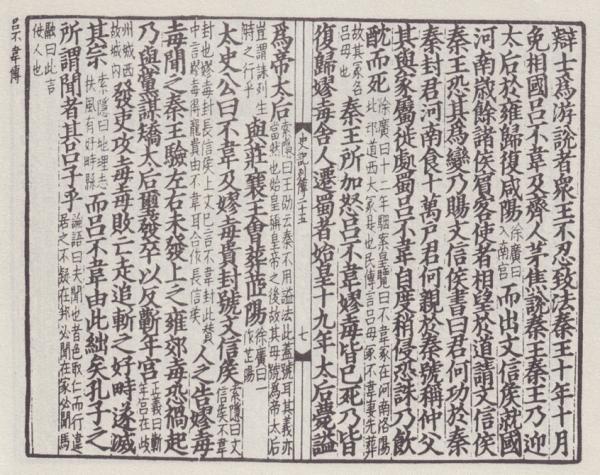 辯士爲游說者衆王不忍致法秦王十年十月
免相國呂不韋及齊人茅焦說秦王秦王乃迎
太后於雍歸復咸陽徐廣曰入南宮而出文信侯就國
河南歲餘諸侯賓客使者相望於道請文信侯
秦王恐其爲變乃賜文信侯書曰君何功於秦
秦封君河南食十萬戶君何親於秦號稱仲父
其與家屬徙處蜀呂不韋自度稍侵恐誅乃飲
酖而死徐廣曰十二年駰案皇覽曰呂不韋冢在河南洛陽北邙道西大冢是也民傳言呂母冢不韋妻先葬
故其冢名呂母也秦王所加怒呂不韋嫪毐皆已死乃皆
復歸嫪毐舍人遷蜀者始皇十九年太后薨謚
史記列傳二十五 七
爲帝太后索隱曰王劭云秦不用謚法此蓋號耳其義亦當然也始皇稱皇帝之後故其母號爲帝太后
豈謂誄列生時之行乎與莊襄王會葬茝陽徐廣曰一作芷陽
太史公曰不韋及嫪毐貴封號文信侯索隱曰文信侯不韋
封也嫪毐封長信侯上文已言不韋封此贊中言嫪毐得寵貴由不韋耳合作長信侯人之告嫪毐
毐聞之秦王驗左右未發上之雍郊毐恐禍起
乃與黨謀矯太后璽發卒以反蘄年宮正義曰蘄年宮在岐
州城西故城內發吏攻毐毐敗亡走追斬之好畤遂滅
其宗索隱曰地理志扶風有好畤縣而呂不韋由此絀矣孔子之
所謂聞者其呂子乎論語曰夫聞也者色取仁而行違居之不疑在邦必聞在家必聞馬
融曰此言佞人也
呂不韋傳